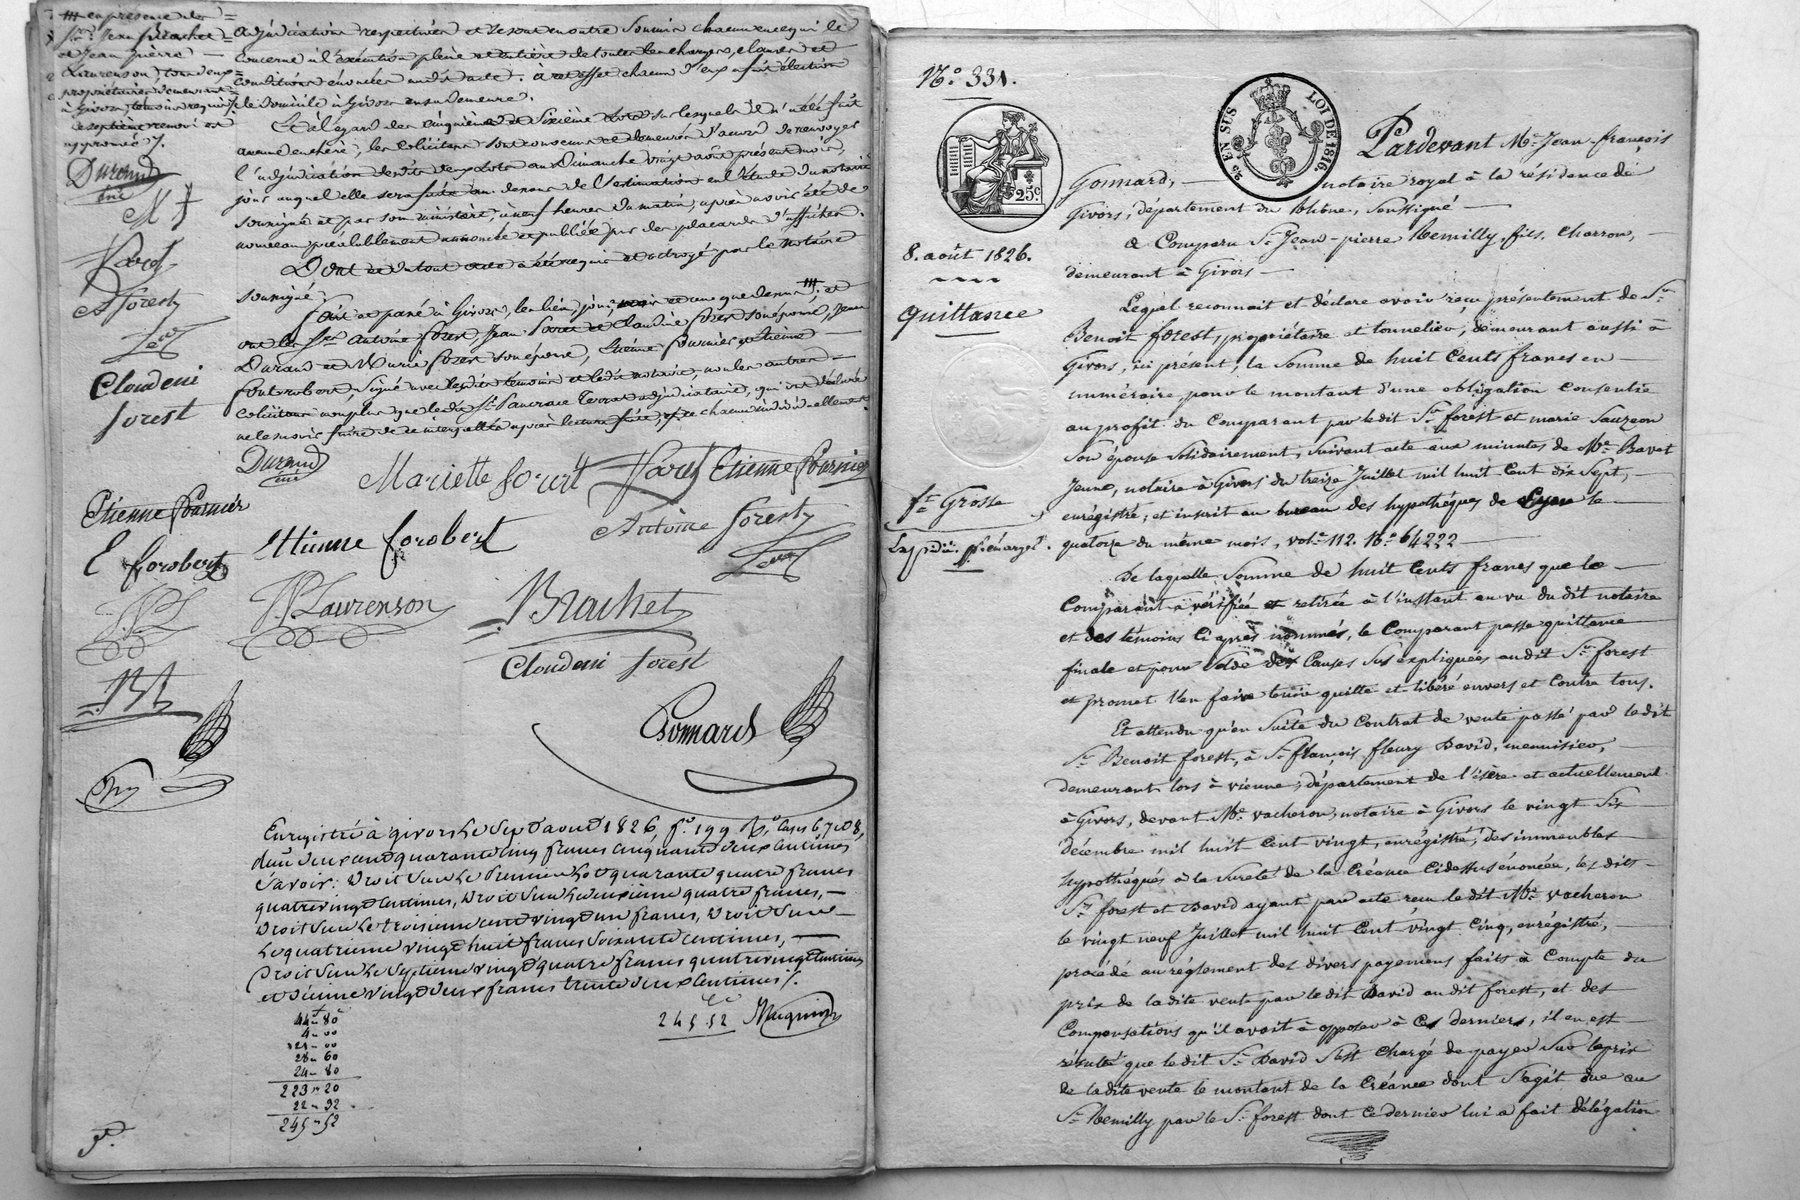 en présence de
Srs Jean Brachet
et Jean pierre
Laurenson, tous deux
propriétaires demeurant
à Givors, témoins requis
approuvé
Durand
ainé
Varel
A forest
Cloudeni
forest
Etienne Fournier
E forobert
JPL
adjudications respectives et se sont en outre soumis chacun en ce qui le
concerne à l'exécution pleine et entière de toutes les charges, clauses et
conditions énoncées audit acte. à cet effet chacun d'eux a fait élection
de domicile à Givors en sa demeure.
Et à l'égard des cinquième et sixième lots sur lesquels il n'a été fait
aucune enchère, les colicitans sont convenus et demeurés d'accord de renvoyer
l'adjudication desdits deux lots au Dimanche vingt août présent mois,
jour auquel elle sera faite au dessous de l'estimation en l'étude du notaire
soussigné et par son ministère, à neuf heures du matin, après avoir été de
nouveau préalablement annoncée et publiée par des placards d'affiches.
Dont et du tout acte a été requis et octroyé par le notaire
soussigné.
Fait et passé à Givors, les lieu, jour, mois et an que dessus et
ont les Srs Antoine forest, Jean Varel et Claudine forest son épouse, Jean
Durand et Marie forest son épouse, Etienne Fournier et Etienne
forobert, signé avec lesdits témoins et ledit notaire, non les autres
colicitans non plus que ledit Sr Pancrace Terras adjudicataire, qui ont déclaré
ne le savoir faire de ce interpellés après lecture faite, chacun individuellement
Durand
ainé
Mariette forest Varel Etienne Fournier
Etienne forobert
Antoine forest
JP Laurenson
Brachet
Cloudeni forest
Gonnard
Enregistré à givors le Sept aout 1826, fo. 199 Vo. cases 6, 7 et 8,
deux cent quarante cinq francs cinquante deux centimes
Savoir: Droit sur le Premier lot quarante quatre francs
quatrevingt Centimes, Droit sur le deuxième quatre francs,
Droit sur le troisième cent vingt un francs, Droit sur
le quatrième vingt huit francs soixante centimes,
Droit sur le Septième vingt quatre francs quatrevingt Centimes
et dixième vingt deux francs trente deux Centimes /.
44 " 80
4 " 00
121 " 00
28 " 60
24 " 80
223 " 20
22 " 32
245 " 52
245.52
No. 331.
25c
EN SUS
LOI DE 1816.
8. août 1826.
Quittance
fte Grosse
Pardevant Me Jean-françois
Gonnard, notaire royal à la résidence de
Givors, département du Rhône, soussigné
a Comparu Sr Jean-pierre Remilly, fils, charron,
demeurant à Givors
Lequel reconnait et déclare avoir reçu présentement de Sr
Benoit forest, propriétaire et tonnelier, demeurant aussi à
Givors, ici présent, la somme de huit Cents francs en
numéraire, pour le montant d'une obligation consentie
au profit du Comparant par ledit Sr forest et marie Sauzeon
son épouse solidairement, suivant acte aux minutes de Me Bavet
Jeune, notaire à Givors du treize Juillet mil huit Cent dix sept,
enrégistré, et inscrit au bureau des hypothéques de Lyon le
quatorze du même mois, vole 112. No 64222
De laquelle somme de huit Cents francs que le
Comparant a vérifiée et retirée à l'instant au vu du dit notaire
et des témoins Ci après nommés, le Comparant passe quittance
finale et pour solde des Causes sus expliquées audit Sr forest
et promet l'en faire tenir quitte et libéré envers et contre tous.
Et attendu qu'en suite du Contrat de vente passé par ledit
Sr Benoit forest, à Sr françois fleury David, menuisier,
demeurant lors à vienne, département de l'isère et actuellement
à Givors, devant Me vacheron, notaire à Givors le vingt six
décembre mil huit Cent vingt, enrégistré, des immeubles
hypothéqués à la sureté de la Créance Cidessus énoncée, les dits
Srs forest et David ayant par acte reçu ledit Me vacheron
le vingt neuf Juillet mil huit Cent vingt Cinq, enrégistré,
procédé au réglement des divers payemens faits à Compte du
prix de ladite vente par ledit David au dit forest, et des
Compensations qu'il avoit à opposer à ces derniers, il en est
résulté que ledit Sr David s'est chargé de payer sur le prix
de ladite vente le montant de la Créance dont s'agit due au
Sr Remilly par le Sr forest dont ce dernier lui a fait délégation